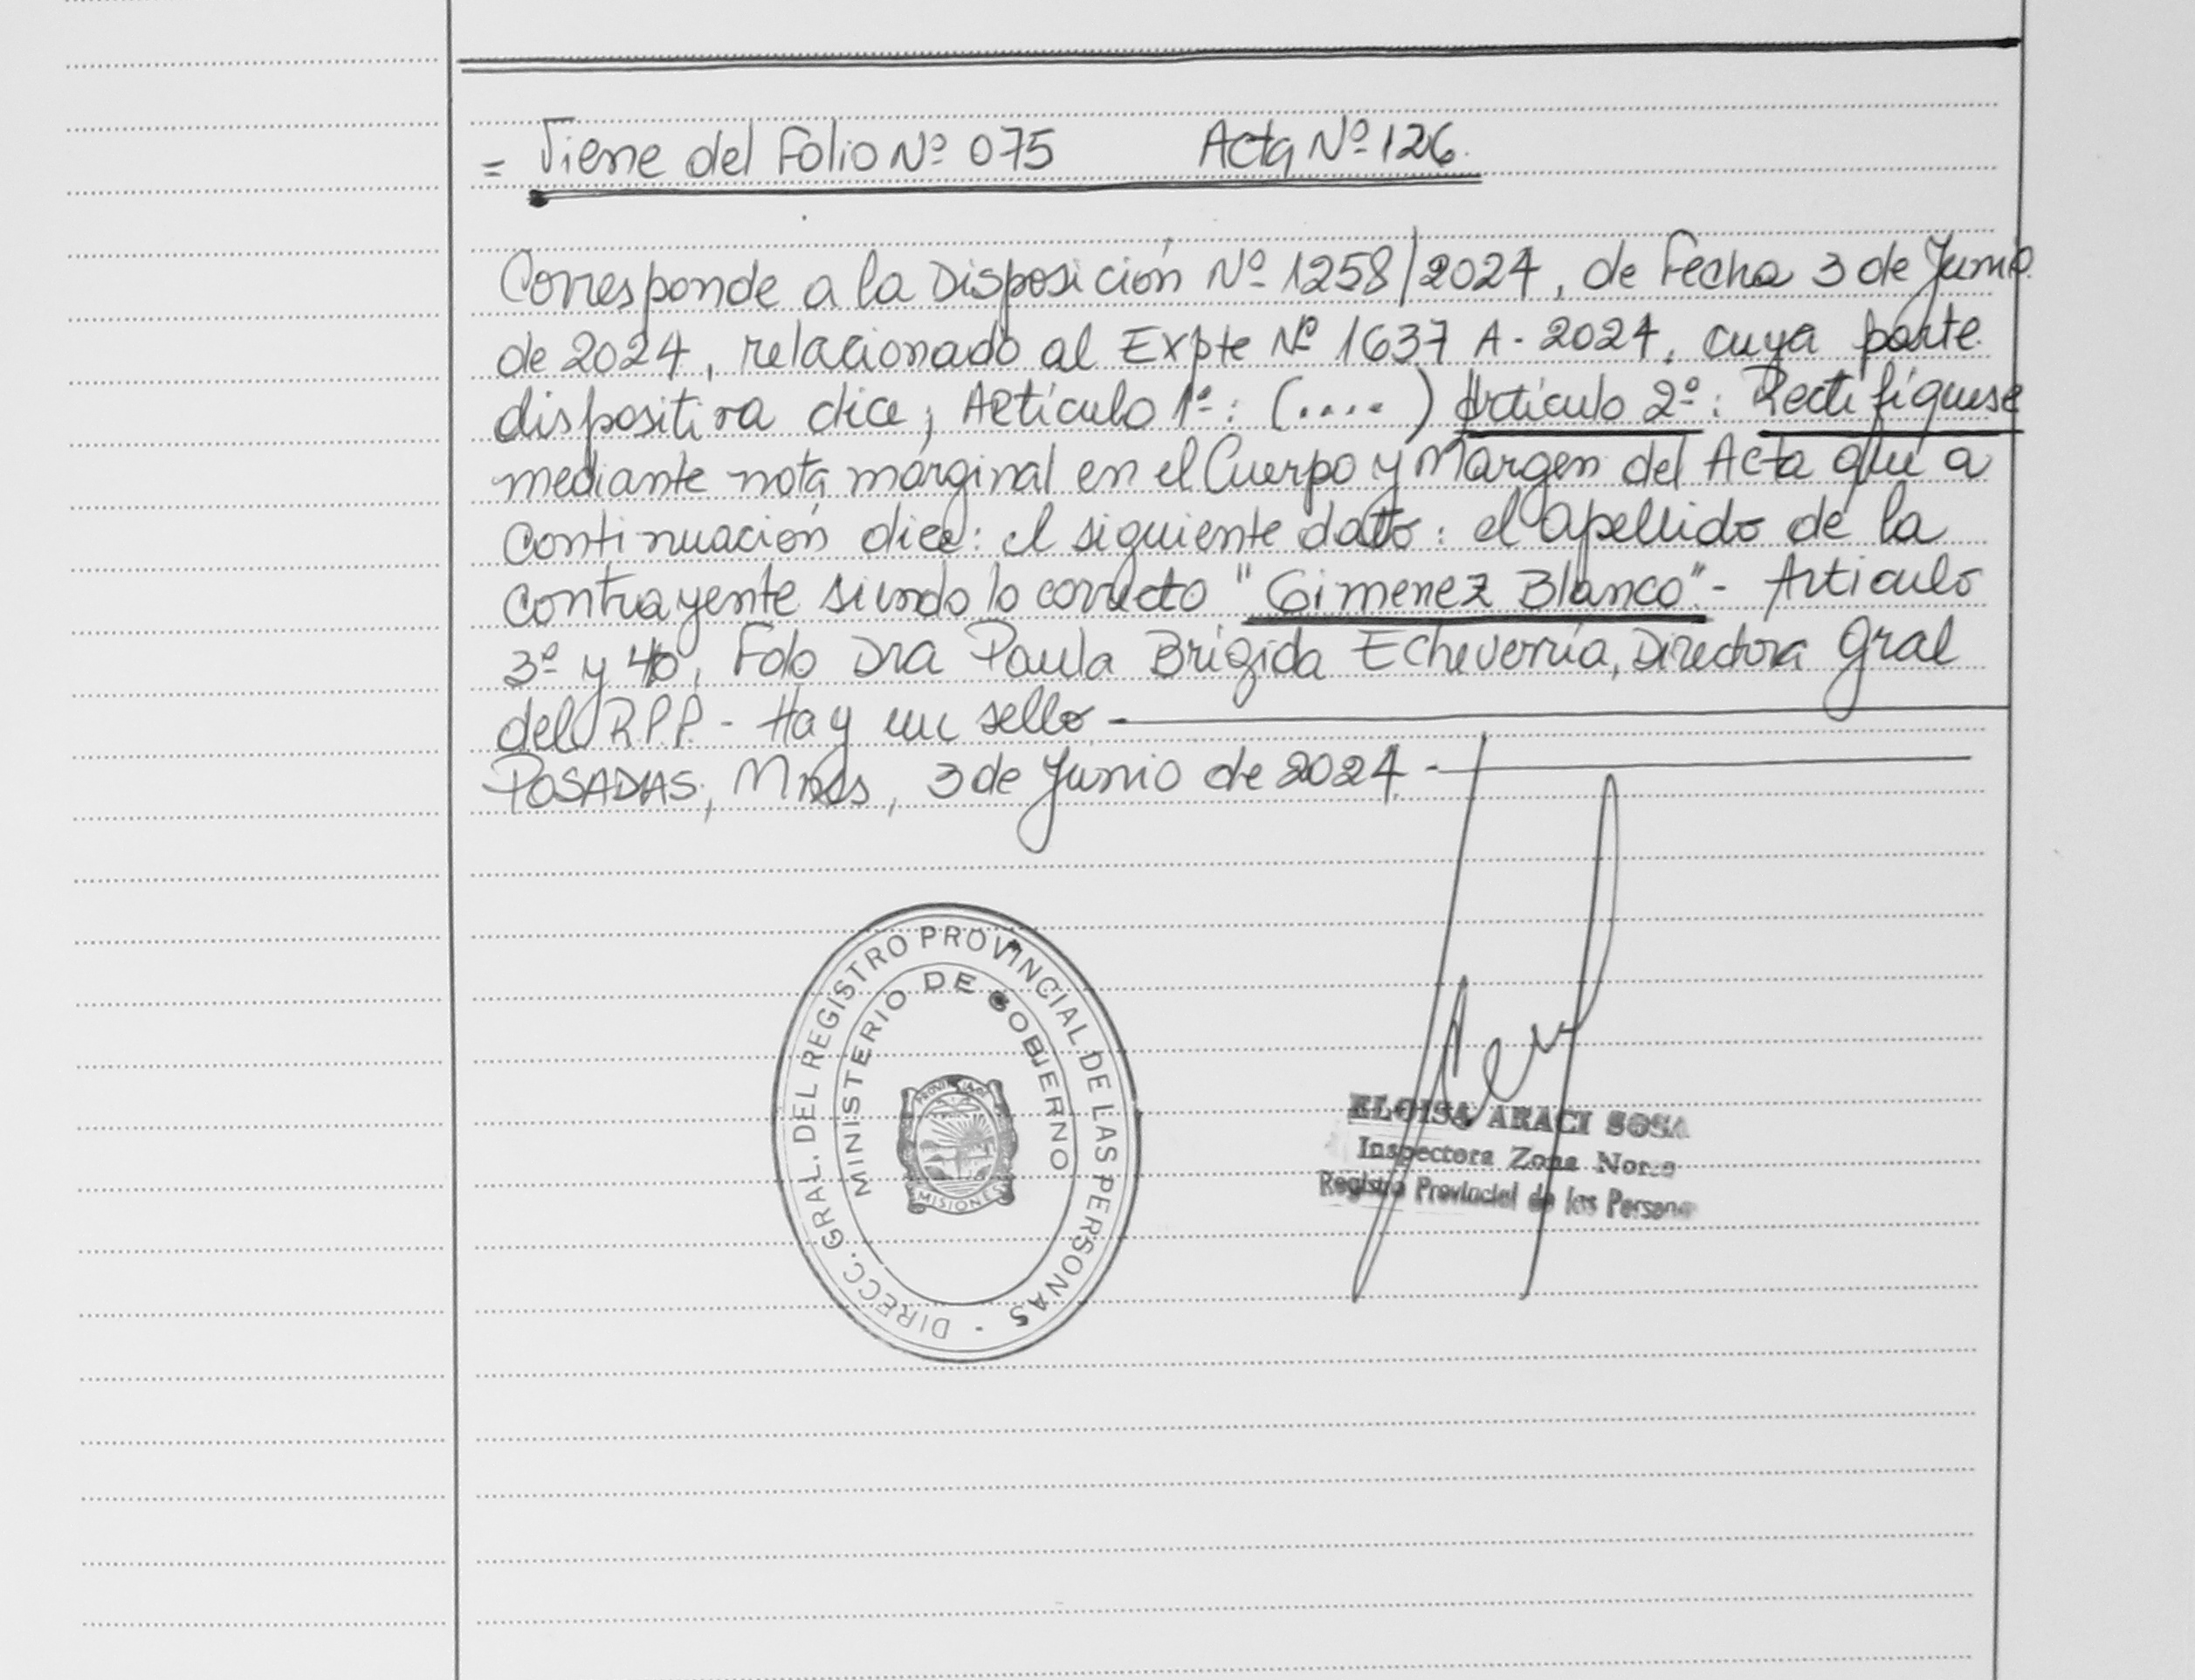 = Viene del Folio Nº 075 Acta Nº 126.
Corresponde a la Disposición Nº 1258/2024, de Fecha 3 de Junio
de 2024, relacionado al Expte Nº 1637 A - 2024, cuya parte
dispositiva dice; Artículo 1º: (....) Artículo 2º: Rectifíquese
mediante nota marginal en el Cuerpo y Margen del Acta que a
continuación dice: el siguiente dato: el apellido de la
contrayente siendo lo correcto "Gimenez Blanco".- Articulo
3º y 4º, Fdo Dra Paula Brígida Echeverría, Directora Gral
del R.P.P. - Hay un sello -
POSADAS, Mnes, 3 de Junio de 2024 -
DIRECC. GRAL. DEL REGISTRO PROVINCIAL DE LAS PERSONAS -
MINISTERIO DE GOBIERNO
PROVINCIA DE
MISIONES
ELOISA ARACI SOSA
Inspectora Zona
Registro Provincial de las Persona